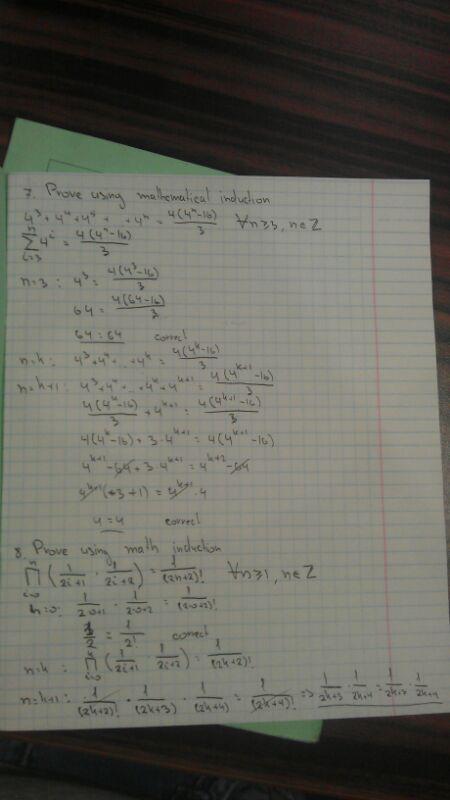 7. Prove using mathematical induction
4^3 + 4^4 + 4^5 + ... + 4^n = 4(4^n-16)/3 ∀n≥3, n∈Z
∑_{i=3}^{n} 4^i = 4(4^n-16)/3
n=3: 4^3 = 4(4^3-16)/3
64 = 4(64-16)/3
64 = 64 correct
n=k: 4^3+4^4+...+4^k = 4(4^k-16)/3
n=k+1: 4^3+4^4+...+4^k+4^{k+1} = 4(4^{k+1}-16)/3
4(4^k-16)/3 + 4^{k+1} = 4(4^{k+1}-16)/3
4(4^k-16) + 3·4^{k+1} = 4(4^{k+1}-16)
4^{k+1} - 64 + 3·4^{k+1} = 4^{k+2} - 64
4^{k+1}(+3+1) = 4^{k+1}·4
4=4 correct
8. Prove using math induction
∏_{i=0}^{n} (1/(2i+1) · 1/(2i+2)) = 1/(2n+2)! ∀n≥1, n∈Z
n=0: 1/(2·0+1) · 1/(2·0+2) = 1/(2·0+2)!
1/2 = 1/2! correct
n=k: ∏_{i=0}^{k} (1/(2i+1) 1/(2i+2)) = 1/(2k+2)!
n=k+1: 1/(2k+2)! · 1/(2k+3) · 1/(2k+4) = 1/(2k+4)! => 1/(2k+3) · 1/(2k+4) = 1/(2k+3) · 1/(2k+4)